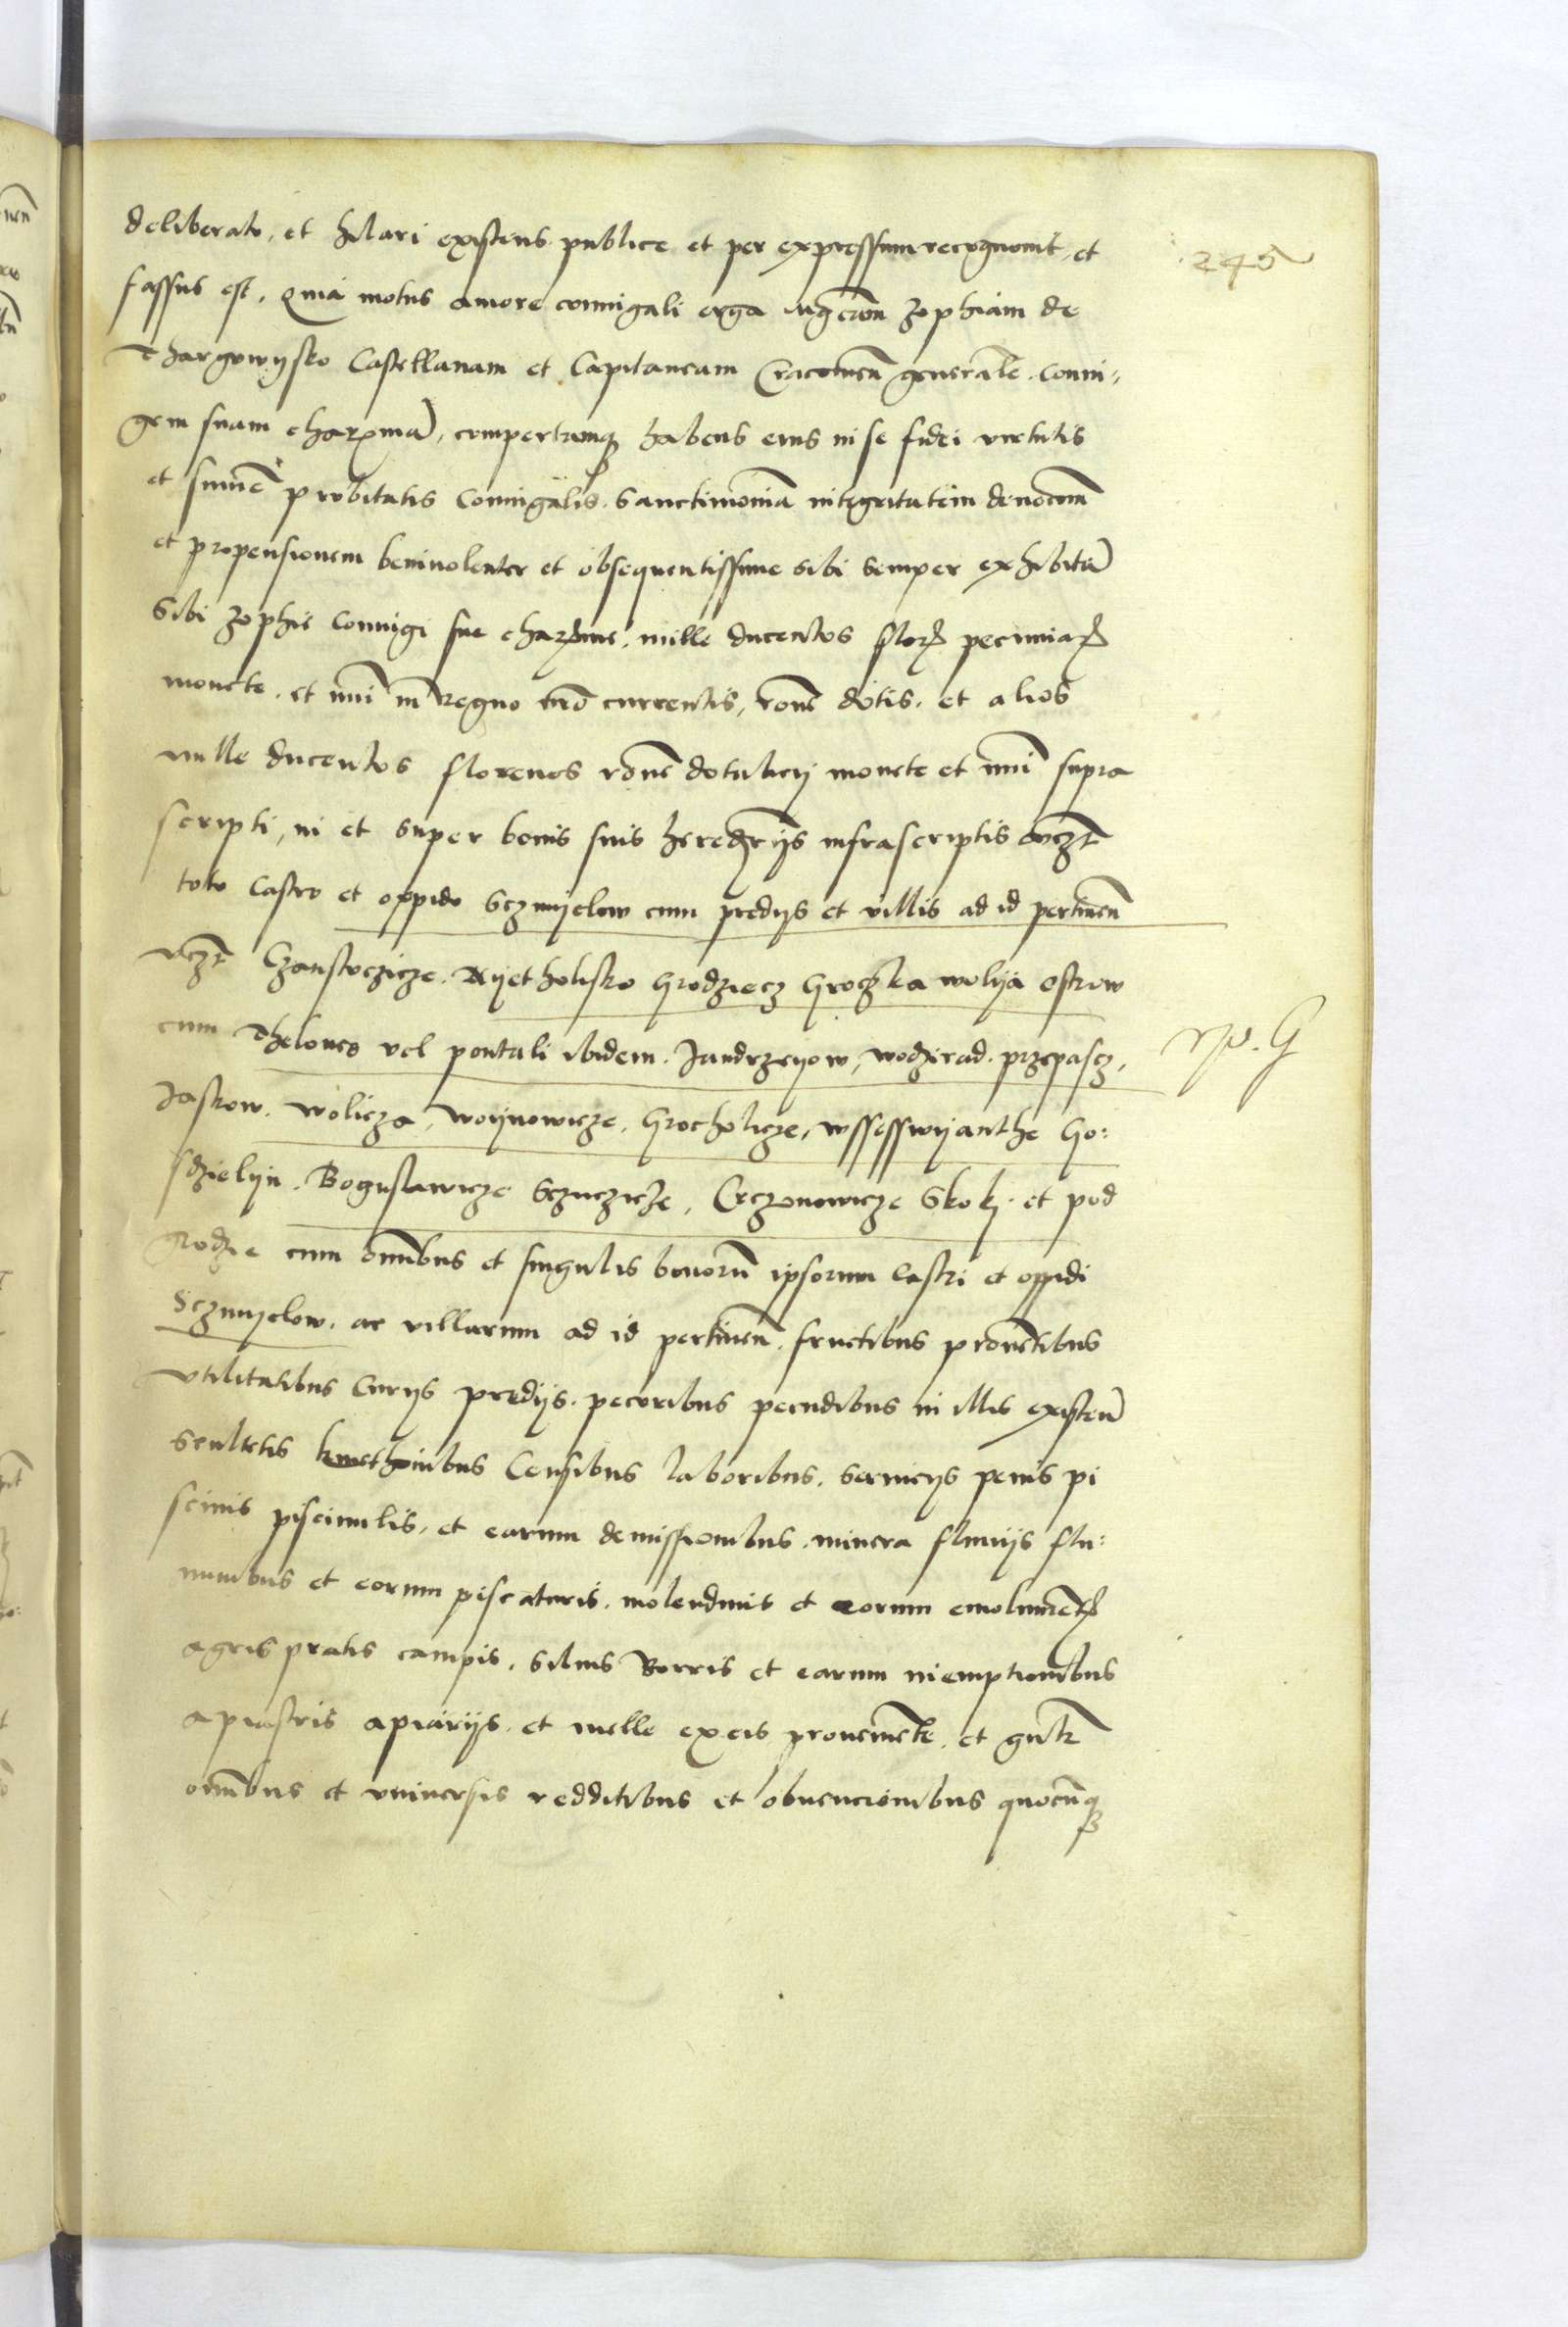 deliberato, et hilari existens publice et per expressum recognouit, et
245
fassus est, Quia motus amore coniugali erga Zophiam de
Thargowysko Castellanam et Capitaneam Cracouieñ generalẽ coniu„
gem suam charṃã, compertumqꝫ habens eius in se fidei virtutis
et sum̃e probitatis coniugalis sanctimoniã integritatem deuocõm
et propensionem beniuolenter et obsequentissime sibi semper exhibitã
sibi Zophie coniugi sue charissime mille ducentos florꝭ pecuniarꝭ
monete et nũi in Regno currentis, rõne dotis et alios
mille ducentos florenos rõne dotalicij monete et nũi supra
scripti, in et super bonis suis heredr̃ijs infrascriptis vcꝫt
toto Castro et oppido Sczmyelow cum predijs et villis ad id pertineñ
vcꝫt Czanstoczicze Nyetholisko Grodziecz Groczka wolya Ostrow
cum Theloneo vel pontali ibidem Jandrzeyow, wodzirad przepascz,
Nº. G
Jastow wolicza, woynowicze, Grocholicze, wssesswyanthe Go:
sdzielyn Boguslawicze Sczuczicze, Crczonowicze Skoki et pod
grodzie cum om̃ibus et singulis bonorũ ipsorum castri et oppidi
Sczmyelow, ac villarum ad id pertineñ fructibus prouẽtibus
vtilitatibus Curijs predijs pecoribus pecudibus in illis existeñ
scultetis kmethonibus Censibus laboribus seruicijs penis pi
scinis pisciculis, et earum demissionibus minera fluuijs flu:
minibus et eorum piscaturis molendinis et eorum emolimẽtꝭ
agris pratis campis siluis Borris et earum in emptionibus
apiastris apiarijs et melle ex eis proueniẽte et gñlr̃
om̃ibus et vniuersis redditibus et obuencionibus quocũqꝫ